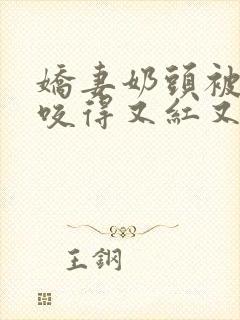 嬌妻奶頭被
咬得又紅又
王鋼